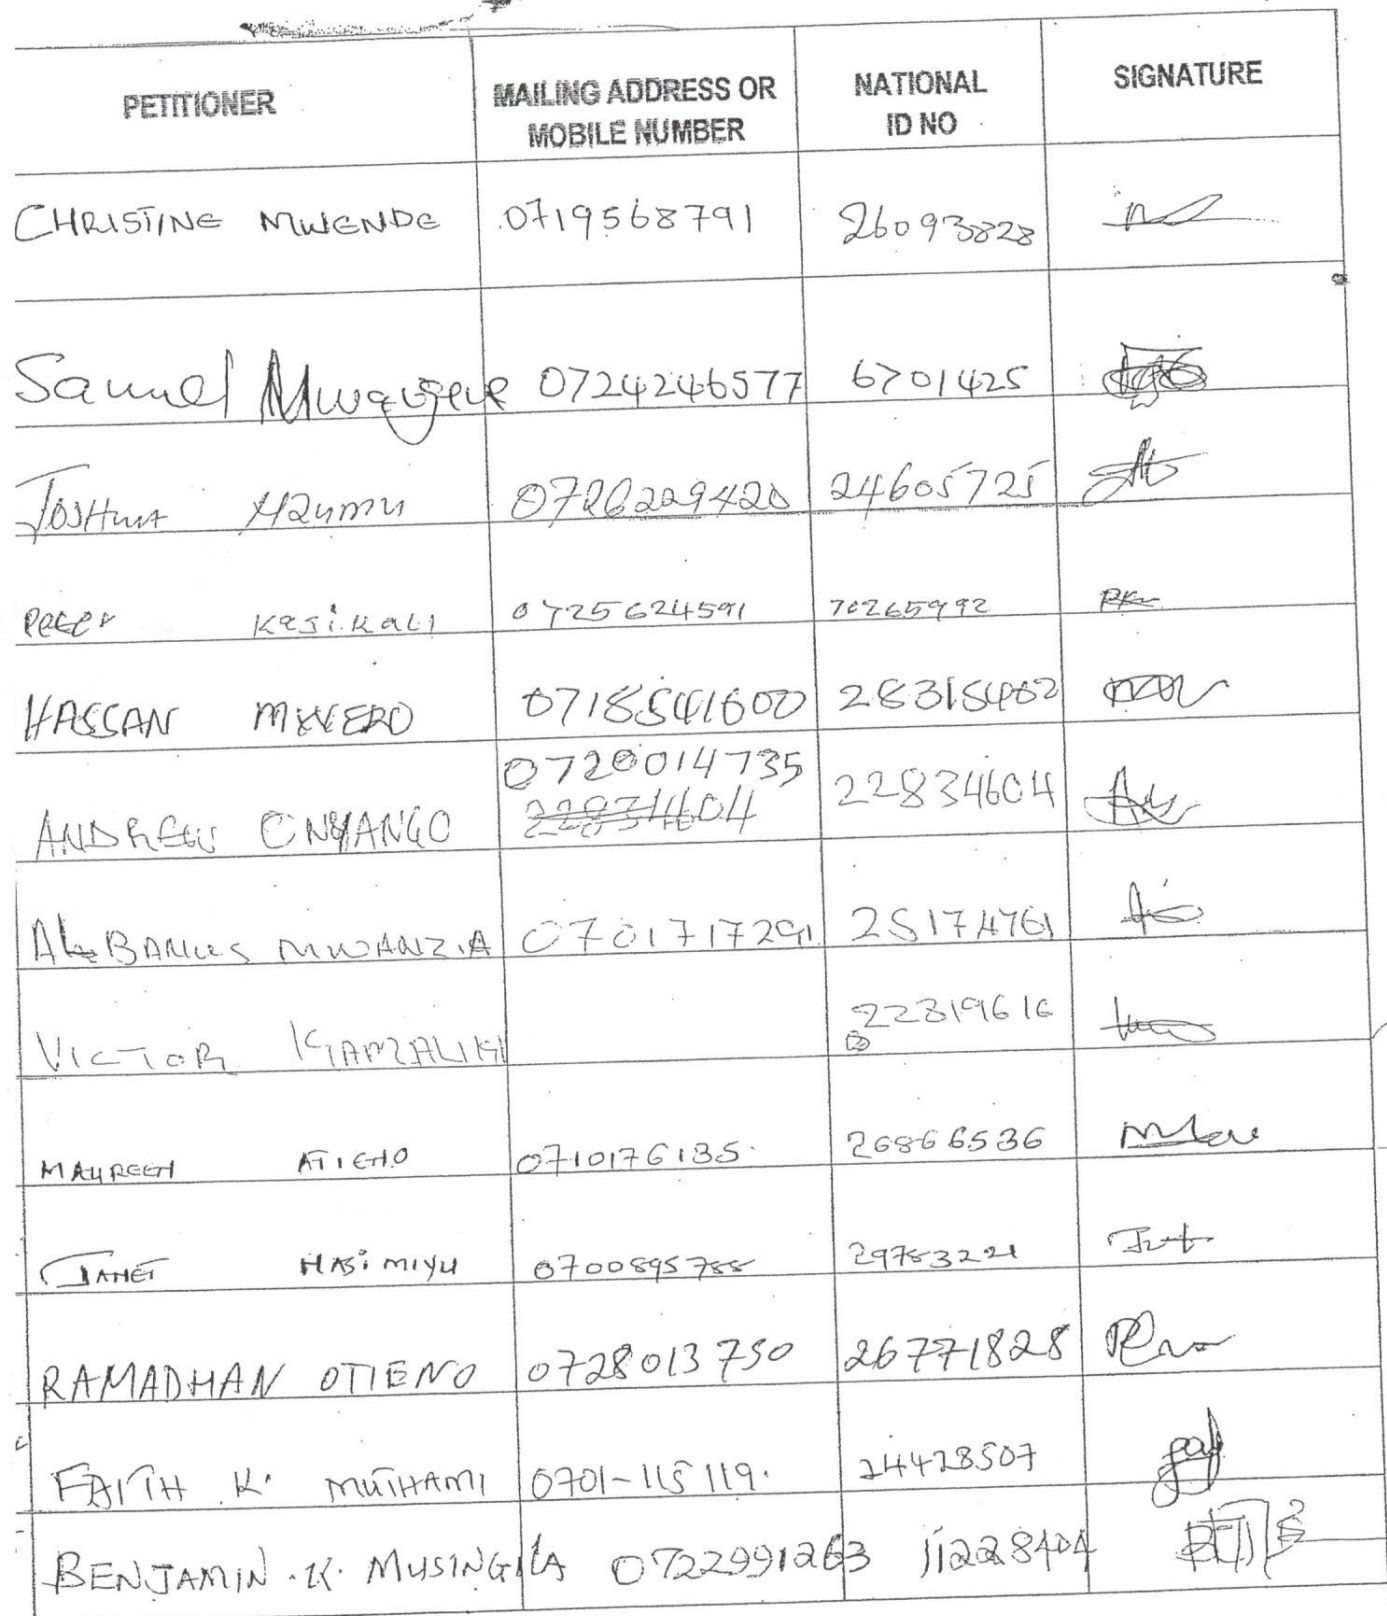 PETITIONER MAILING ADDRESS OR NATIONAL SIGNATURE
MOBILE NUMBER ID NO
CHRISTINE MWENDE 0719568791 26093828
Samuel 0724246577 6701425
Joshua 0726229420 24605725
Peter Kasikali 0725624591
HASSAN 28315402
0720014735
ANDREW ONYANGO 22834604 22834604
ALBANUS MWANZIA 0701717291 25174761
VICTOR 22819616
MAUREEN ATIENO 0710176135. 26866536
JANET NASiMIYU 0700895788 29783221
RAMADHAN OTIENO 0728013750 26771828
FAITH K. MUTHAMI 0701-115119. 24428507
BENJAMIN .K. MUSINGILA 0722991263 11228404